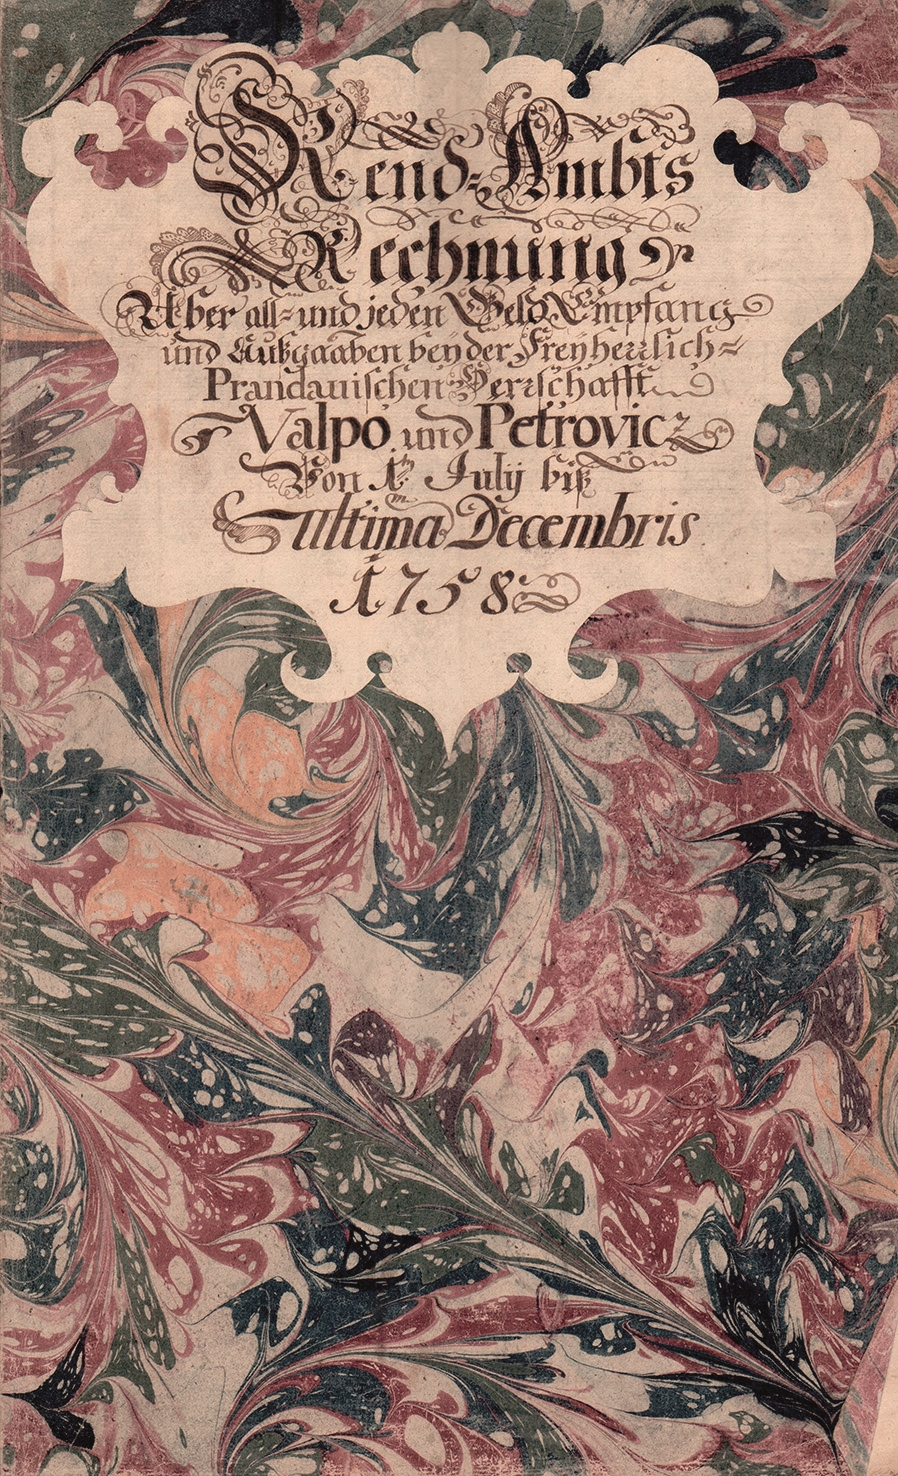 Rend-Ambts
Rechnung
Uber all- und jeden Geld Empfang
und Außgaaben bey der Freyherrlich-
Prandauischen Herrschafft
Valpo und Petrovicz
Von 1ten July biß
ultima Decembris
1758